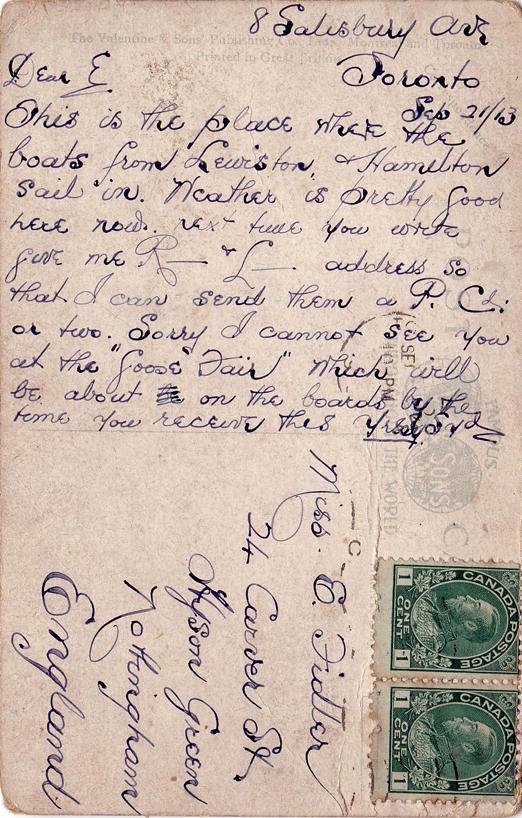 8 Salisbury Ave
The Valentine & Sons' Publishing Co. Ltd. Montreal and Toronto
Printed in Great Britain
Dear E
Toronto
Sep 21/13
This is the place where the
boats from Lewiston, & Hamilton
sail in. Weather is pretty good
here now. next time you write
give me R— & L—. address so
that I can send them a P. Cd.
or two. Sorry I cannot see you
at the "Goose Fair" which will
be about on the boards by the
time you receive this
Miss. E. Fidler
24 Carver St.
Hyson Green
Nottingham
England
CANADA POSTAGE
1 ONE CENT 1
CANADA POSTAGE
1 ONE CENT 1
SE
PM
FAMOUS
SONS
THE WORLD